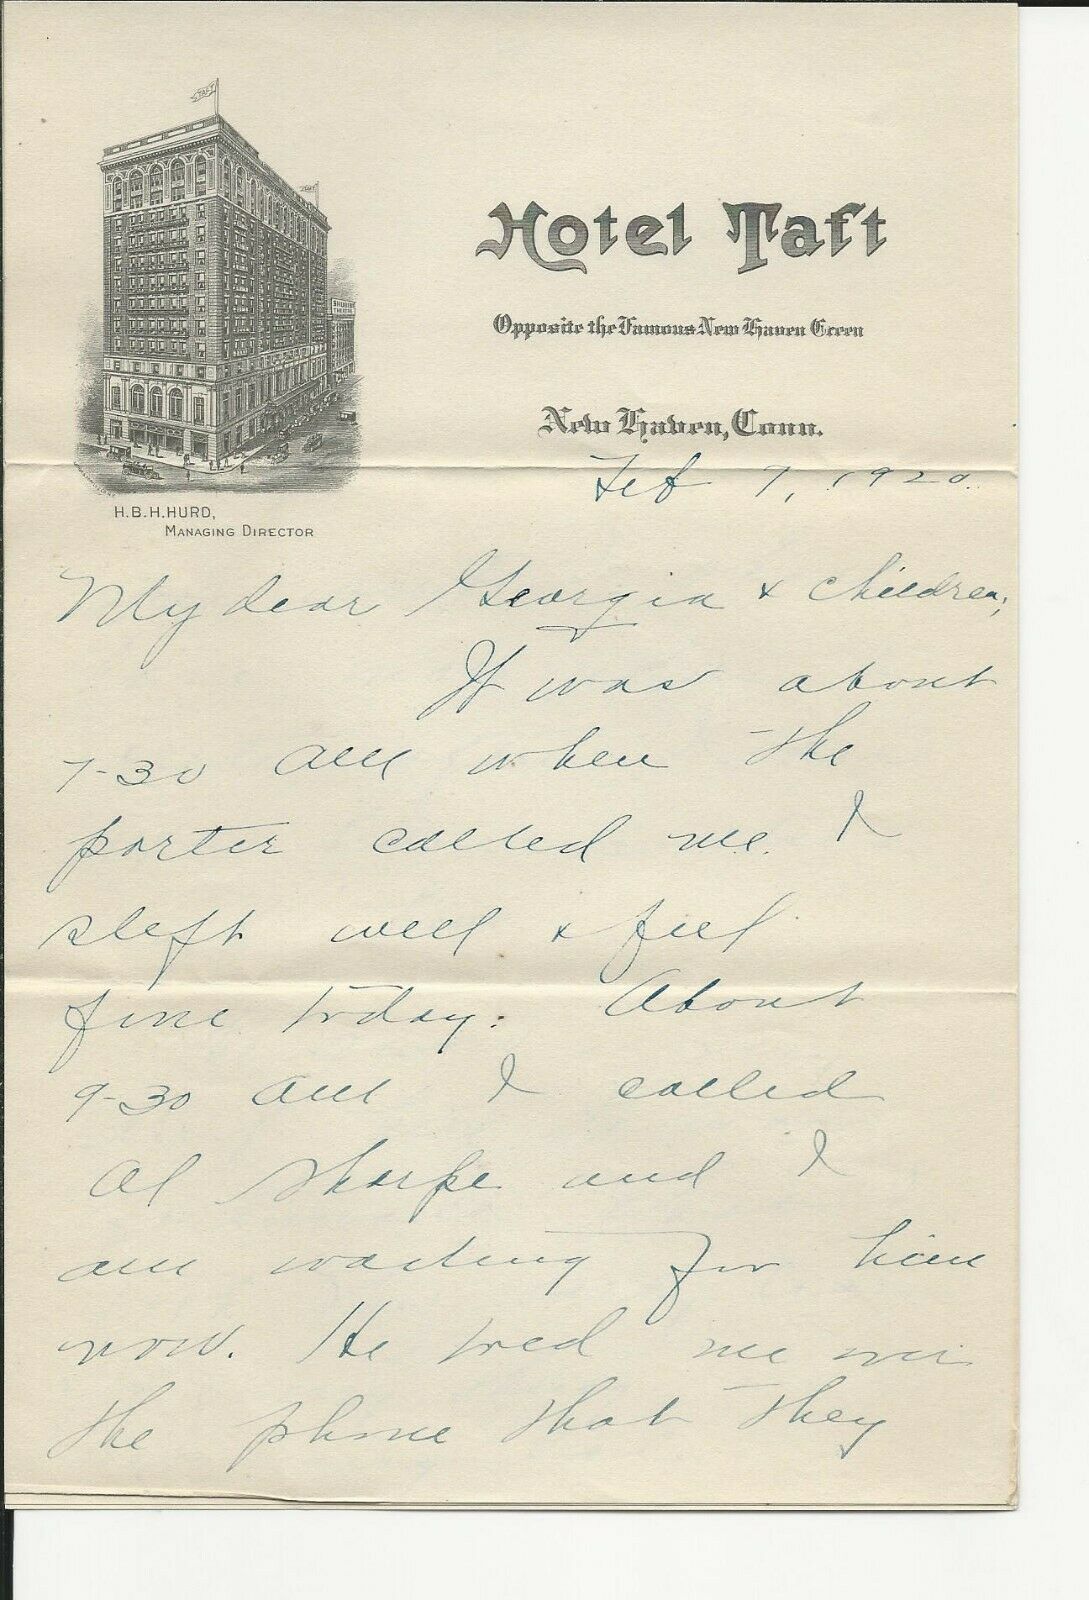 Hotel Taft
Opposite the Famous New Haven Green
New Haven, Conn.
H.B.H.HURD,
MANAGING DIRECTOR
Feb 7, 1920.
My dear Georgia & children;
It was about
7-30 AM when the
porter called me. I
slept well & feel
fine today. About
9-30 AM I called
Al Sharpe and I
am waiting for him
now. He told me over
the phone that they
TAFT